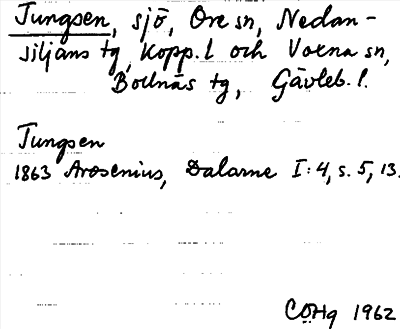 Tungsen, sjö, Ore sn, Nedan-
siljans tg, Kopp. l och Voxna sn,
Bollnäs tg, Gävleb. l.
Tungsen
1863 Arosenius, Dalarne I:4, s. 5, 13.
CÖHg 1962